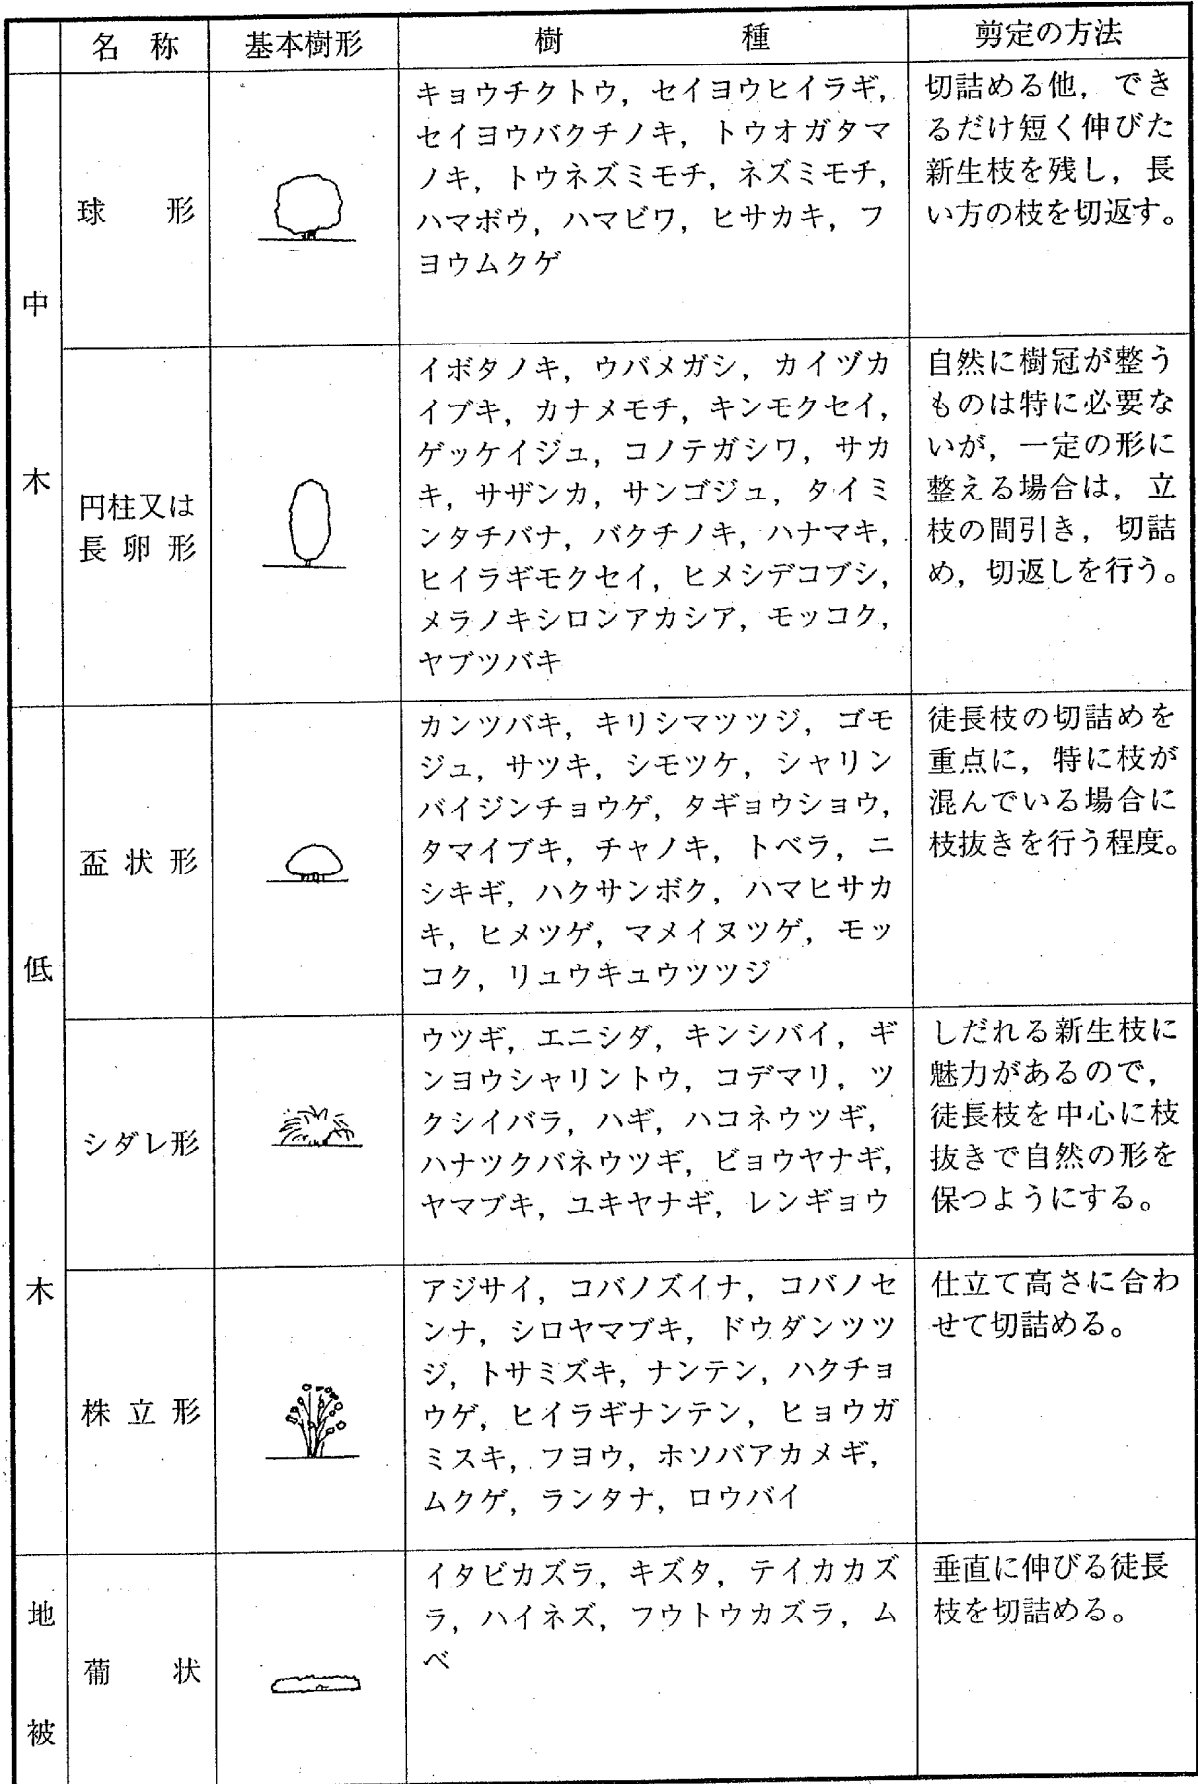 名 称 基本樹形 樹 種 剪定の方法
中木
球 形
キョウチクトウ，セイヨウヒイラギ，
セイヨウバクチノキ，トウオガタマ
ノキ，トウネズミモチ，ネズミモチ，
ハマボウ，ハマビワ，ヒサカキ，フ
ヨウムクゲ
切詰める他，でき
るだけ短く伸びた
新生枝を残し，長
い方の枝を切返す。
円柱又は
長 卵 形
イボタノキ，ウバメガシ，カイヅカ
イブキ，カナメモチ，キンモクセイ，
ゲッケイジュ，コノテガシワ，サカ
キ，サザンカ，サンゴジュ，タイミ
ンタチバナ，バクチノキ，ハナマキ，
ヒイラギモクセイ，ヒメシデコブシ，
メラノキシロンアカシア，モッコク，
ヤブツバキ
自然に樹冠が整う
ものは特に必要な
いが，一定の形に
整える場合は，立
枝の間引き，切詰
め，切返しを行う。
低木
盃 状 形
カンツバキ，キリシマツツジ，ゴモ
ジュ，サツキ，シモツケ，シャリン
バイジンチョウゲ，タギョウショウ，
タマイブキ，チャノキ，トベラ，ニ
シキギ，ハクサンボク，ハマヒサカ
キ，ヒメツゲ，マメイヌツゲ，モッ
コク，リュウキュウツツジ
徒長枝の切詰めを
重点に，特に枝が
混んでいる場合に
枝抜きを行う程度。
シダレ形
ウツギ，エニシダ，キンシバイ，ギ
ンヨウシャリントウ，コデマリ，ツ
クシイバラ，ハギ，ハコネウツギ，
ハナツクバネウツギ，ビョウヤナギ，
ヤマブキ，ユキヤナギ，レンギョウ
しだれる新生枝に
魅力があるので，
徒長枝を中心に枝
抜きで自然の形を
保つようにする。
株 立 形
アジサイ，コバノズイナ，コバノセ
ンナ，シロヤマブキ，ドウダンツツ
ジ，トサミズキ，ナンテン，ハクチョ
ウゲ，ヒイラギナンテン，ヒョウガ
ミスキ，フヨウ，ホソバアカメギ，
ムクゲ，ランタナ，ロウバイ
仕立て高さに合わ
せて切詰める。
地被
葡 状
イタビカズラ，キズタ，テイカカズ
ラ，ハイネズ，フウトウカズラ，ム
ベ
垂直に伸びる徒長
枝を切詰める。